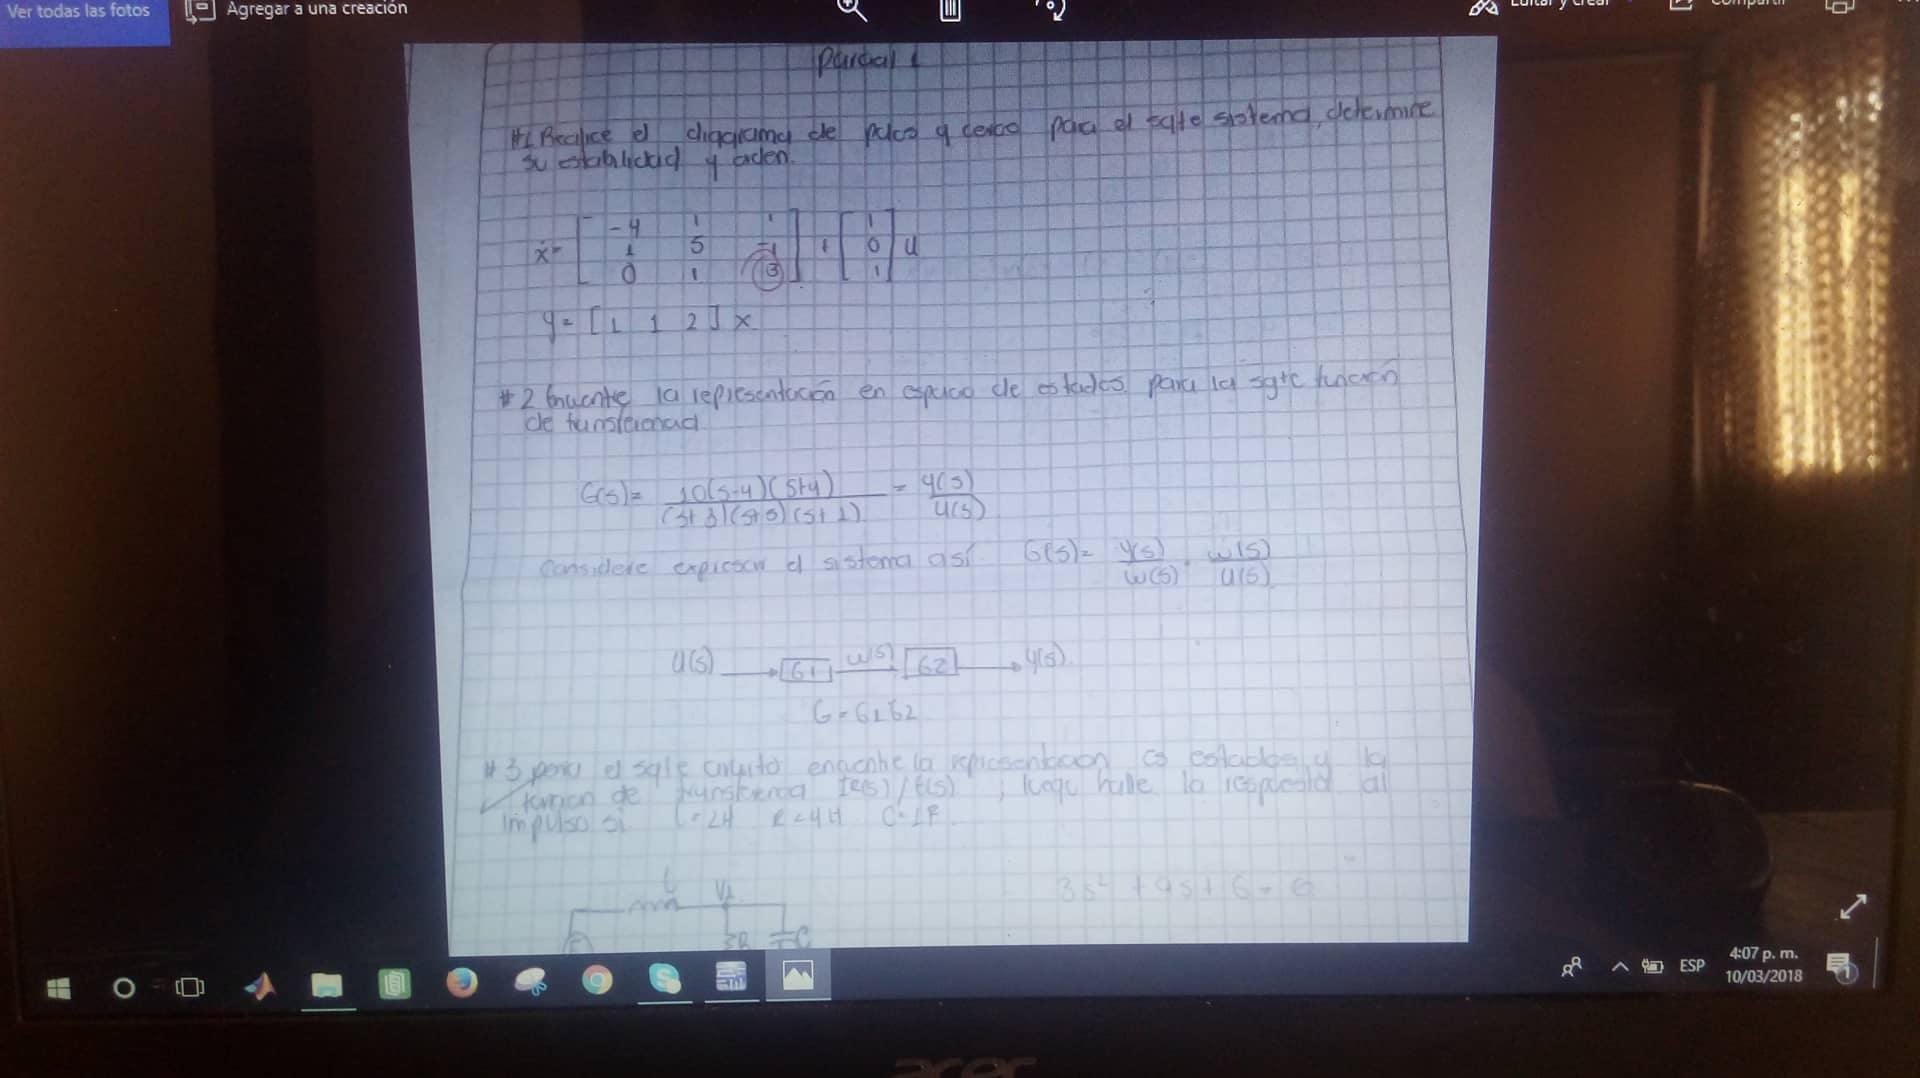 Ver todas las fotos
Agregar a una creación
Editar y crear
Compartir
Parcial 1
#1 Realice el diagrama de polos y ceros para el sgte sistema, determine
su estabilidad y orden.
ẋ= [ -4 1 1
1 5 -1
0 1 3 ] + [ 1
0
1 ] u
y= [1 1 2] x
#2 Encuentre la representación en espacio de estados para la sgte función
de transferencia
G(s)= 10(s-4)(s+4) / (s+3)(s+5)(s+1) = y(s) / u(s)
Considere expresar el sistema así G(s)= y(s) / w(s) . w(s) / u(s)
u(s) G1 w(s) G2 y(s)
G=G1G2
#3 para el sgte circuito encuentre la representacion es estados y la
funcion de transferencia (s)/E(s), luego halle la respuesta al
impulso si L=2H R=4H C=1F
L V1
3s² + 9s + 6 = 0
E R C
ESP
4:07 p. m.
10/03/2018
1
acer